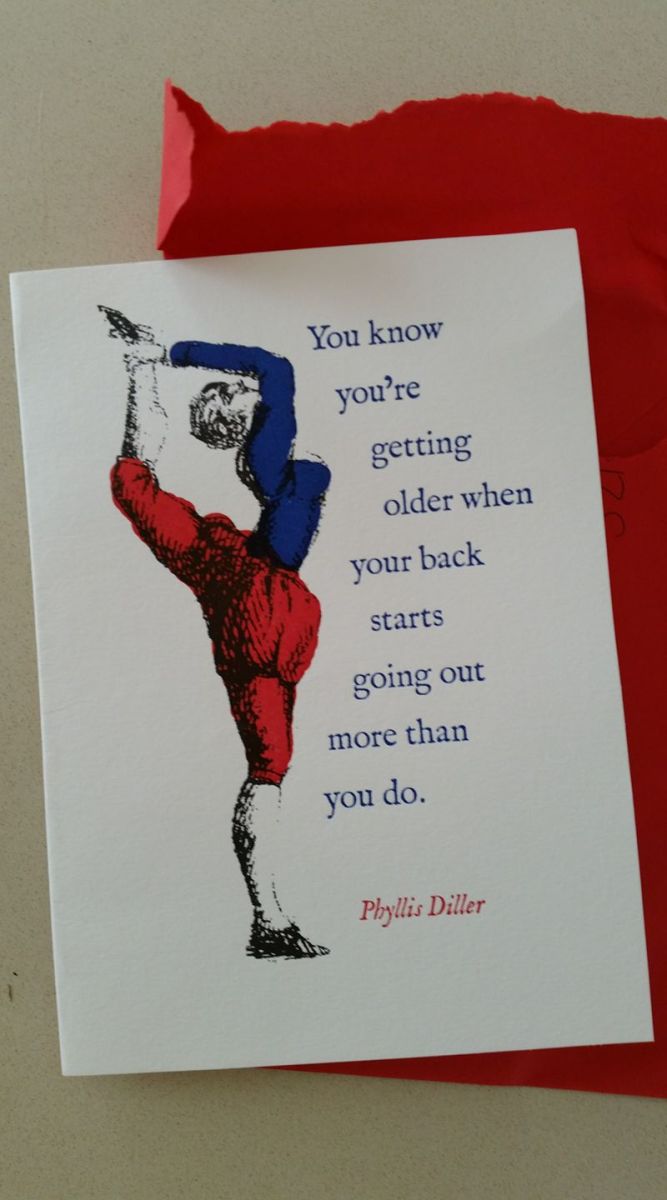 You know
you're
getting
older when
your back
starts
going out
more than
you do.
Phyllis Diller